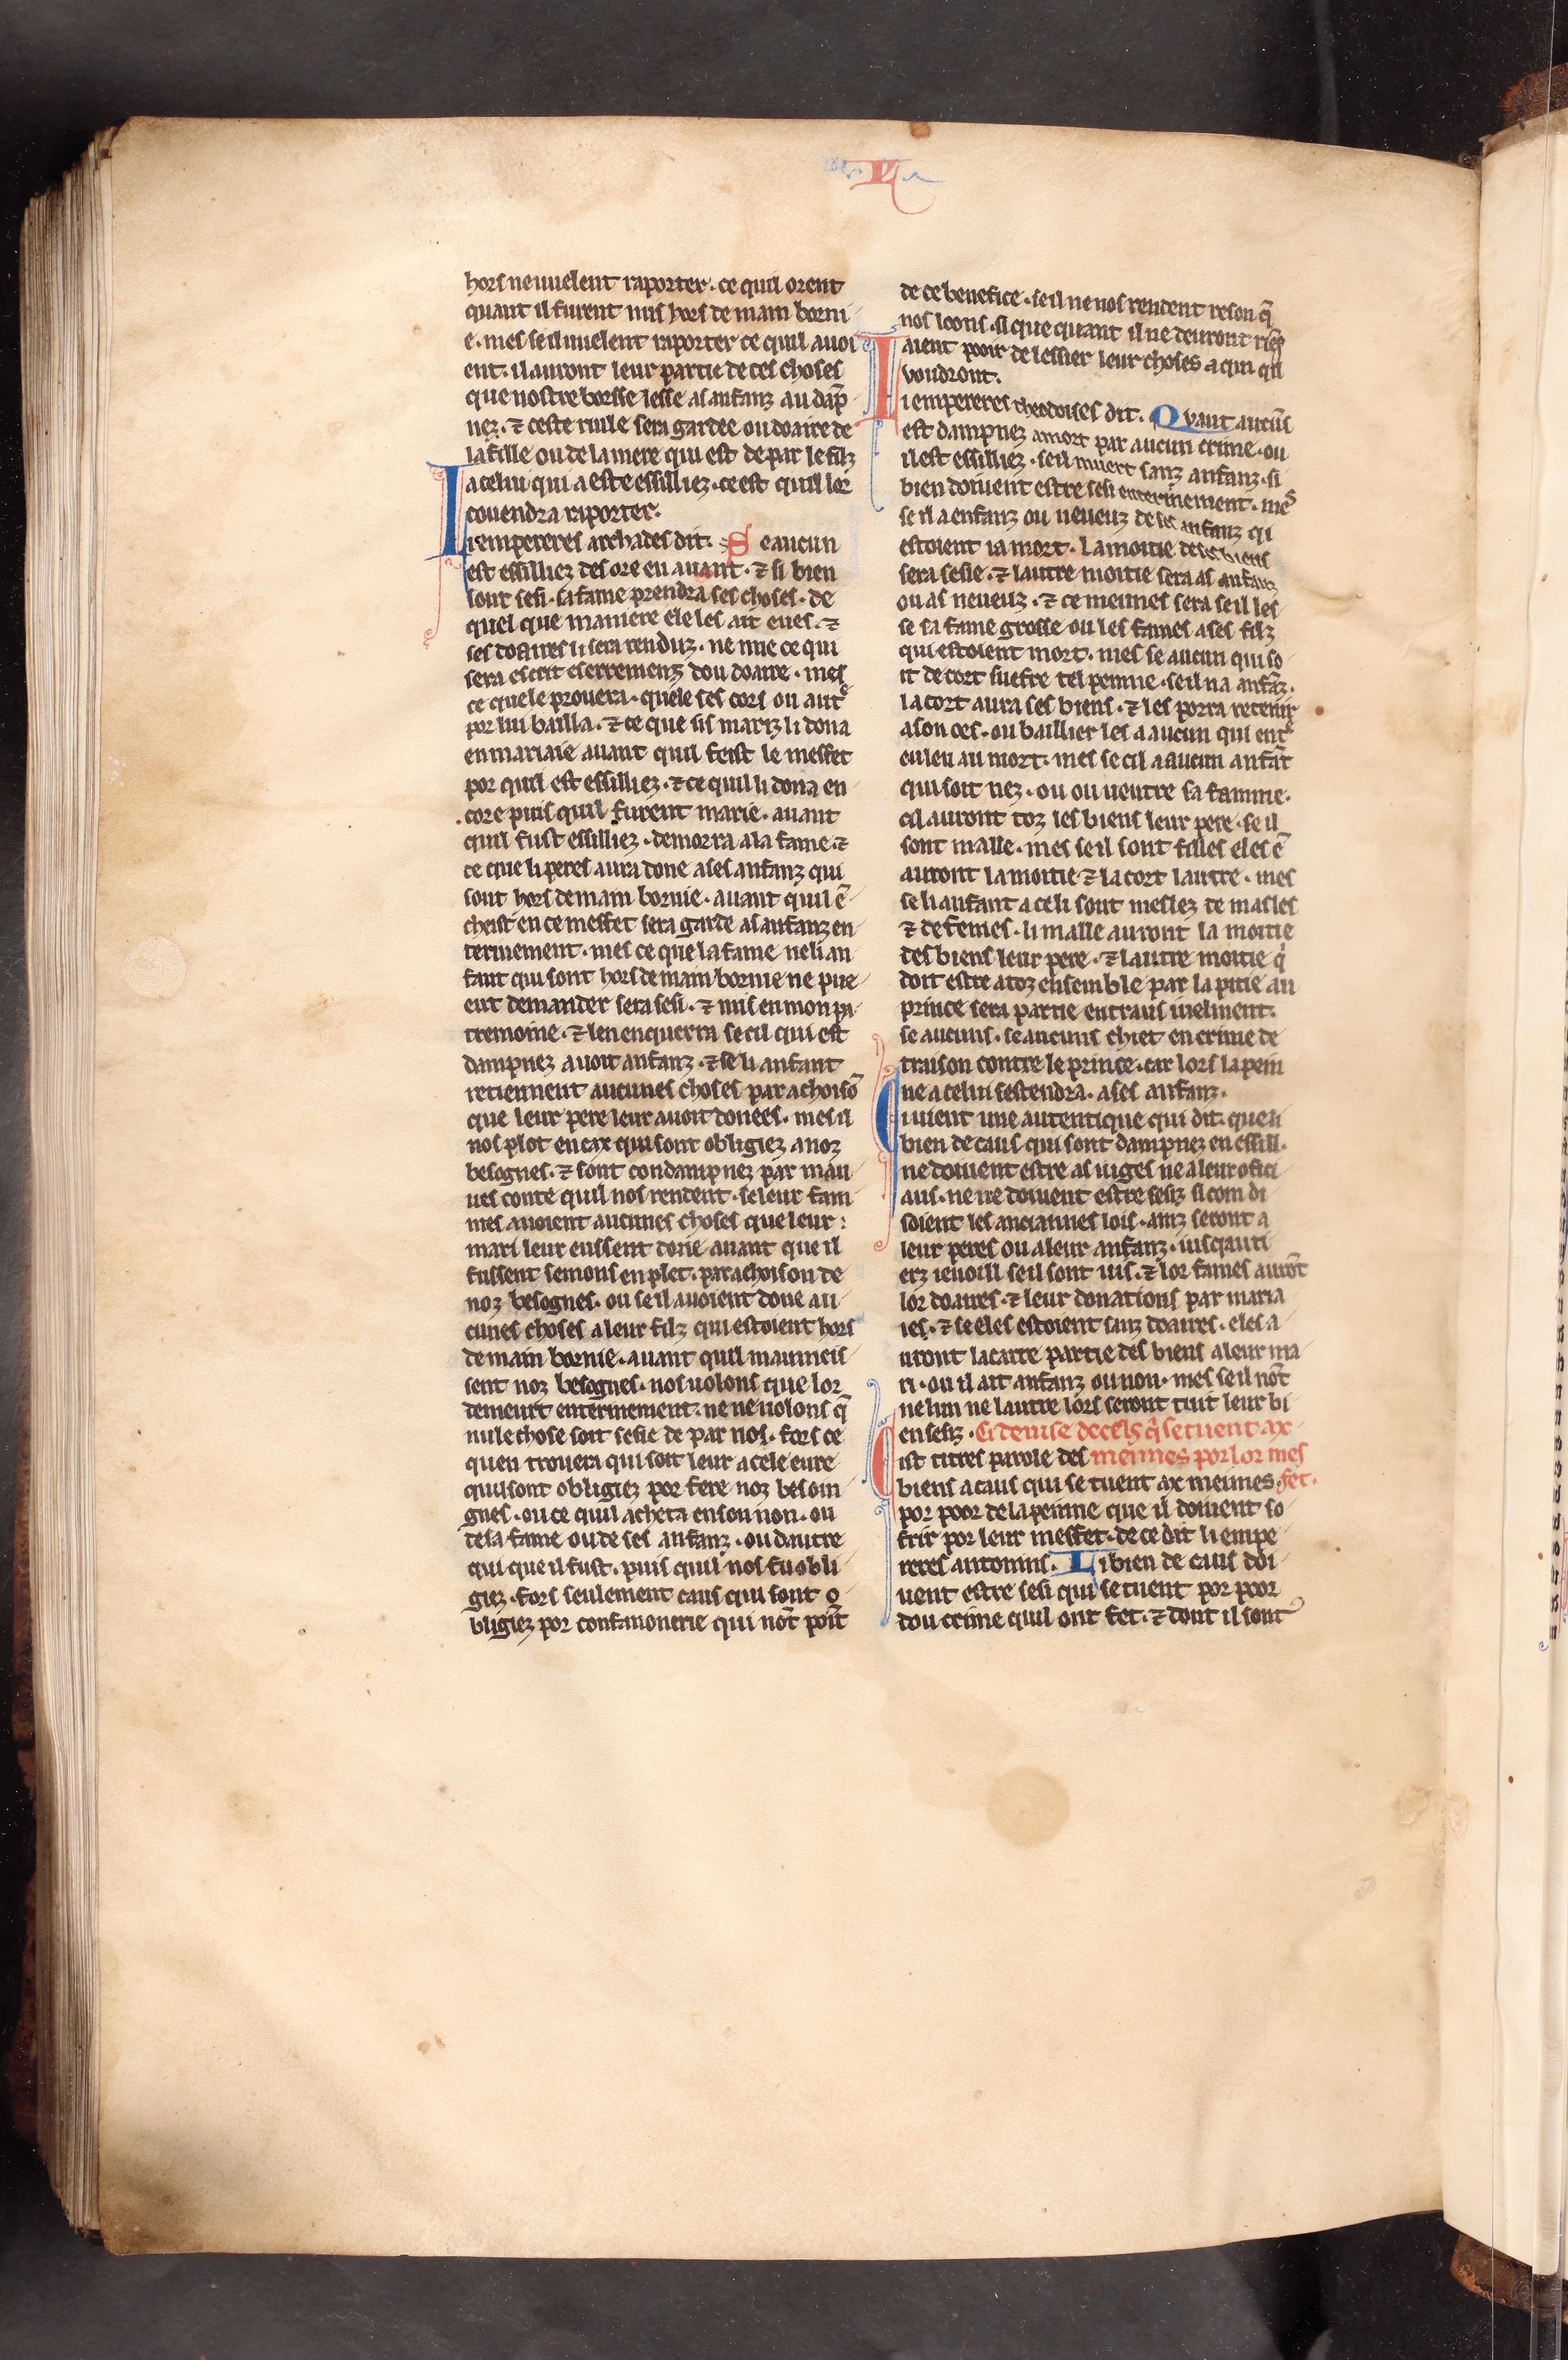 hors ne uuelent raporter · ce quil orent
quant il furent mis hors de main borni
e · mes se il uuelent raporter ce quil auoi
ent · il auront leur partie de ces choses
que nostre borsse lesse as anfanz au dāp
nez · ⁊ ceste riule sera gardee ou doaire de
la fille ou de la mere qui est de par le filz
a celui qui a este essilliez · ce est quil lor
couendra raporter ·
Li empereres archades dit · Se aucun
est essilliez des ore en auant · ⁊ si bien
sont sesi · sa fame prendra ses choses · de
quel que maniere ele les ait eues · ⁊
ses doaires li sera renduz · ne mie ce qui
sera escrit es erremenz dou doaire · mes
ce quele prouera · quele ses cors ou autͤ
por lui bailla · ⁊ ce que sis mariz li dona
en mariaie auant quil feist le meffet
por quil est essilliez · ⁊ ce quil li dona en
core puis quil furent marie · auant
quil fust essilliez · demorra a la fame · ⁊
ce que li peres aura done a ses anfanz qui
sont hors de main bornie · auant quil ē
cheist en ce meffet sera garde as anfanz en
terinement · mes ce que la fame ne li an
fant qui sont hors de main bornie ne pue
ent demander sera sesi · ⁊ mis en mon pa
tremoine · ⁊ len enquerra se cil qui est
dampnez auoit anfanz · ⁊ se li anfant
retiennent aucunes choses par achoisō
que leur pere leur auoit donees · mes il
nos plot en cax qui sont obligiez a noz
besognes · ⁊ sont condampnez par mau
ues conte quil nos rendent · se leur fam
mes auoient aucunes choses que leur :
mari leur eussent done auant que il
fussent semons en plet · par achoison de
noz besognes · ou se il auoient done au
cunes choses a leur filz qui estoient hors
de main bornie · auant quil maumeis
sent noz besognes · nos uolons que lor
demeurt enterinement · ne ne uolons q̄
nule chose soit sesie de par nos · fors ce
quen trouera qui soit leur a cele eure
quil sont obligiez por fere noz besoin
gnes · ou ce quil acheta en son non · ou
de sa fame ou de ses anfanz · ou dautre
qui que il fust · puis quil nos fu obli
giez · fors seulement caus qui sont o
bligiez por confanonerie qui nōt poīt
de ce benefice · se il ne nos rendent reson q̄
nos loons · si que quant il ne deuront riē
aient pooir de lessier leur choses a cui quil
voudront ·
Li empereres theodoises dit · Quant aucūs
est dampnez a mort par aucun crime · ou
il est essilliez · se il muert sanz anfanz · si
bien doiuent estre sesi enterinement · mes
se il a enfanz ou neueuz de ses anfanz qi
estoient ia mort · la moitie de ses biens
sera sesie · ⁊ lautre moitie sera as anfanz
ou as neueuz · ⁊ ce meimes sera se il les
se sa fame grosse ou les fames a ses filz
qui estoient mort · mes se aucun qui so
it de cort suefre tel peinne · se il na anfāz ·
la cort aura ses biens · ⁊ les porra retenir
a son oes · ou baillier les a aucun qui entͤ
en leu au mort · mes se cil a aucun anfāt
qui soit nez · ou ou uentre sa famme ·
cil auront toz les biens leur pere · se il
sont malle · mes se il sont filles eles ē
auront la moitie ⁊ la cort lautre · mes
se li anfant a celi sont meslez de masles
⁊ de femes · li malle auront la moitie
des biens leur pere · ⁊ lautre moitie qͥ
doit estre a toz ensemble par la pitie au
prince sera partie entraus iuelment ·
se aucuns · se aucuns chiet en crime de
traison contre le prince · car lors la pein
ne a celui sestendra · a ses anfanz ·
Ci uient une autentique qui dit · que li
bien de caus qui sont dampnez en essill ·
ne doiuent estre as iuges ne a leur ofici
aus · ne ne doiuent estre sesiz si com di
soient les anciannes lois · ainz seront a
leur peres ou a leur anfanz · iusqau ti
erz ienoill se il sont uis · ⁊ lor fames aurōt
lor doaires · ⁊ leur donations par maria
ies · ⁊ se eles estoient sanz doaires · eles a
uront la carte partie des biens a leur ma
ri · ou il ait anfanz ou non · mes se il nōt
ne lun ne lautre lors seront tuit leur bi
en sesiz · Ci deuise de cels qͥ se tuent ax
Cist titres parole des meimes por lor mes
biens a caus qui se tuent ax meimes · fet ·
por poor de la peinne que il doiuent so
frir por leur meffet · de ce dit li empe
reres antonins · Li bien de caus doi
uent estre sesi qui se tuent por poor
dou crime quil ont fet · ⁊ dont il sont